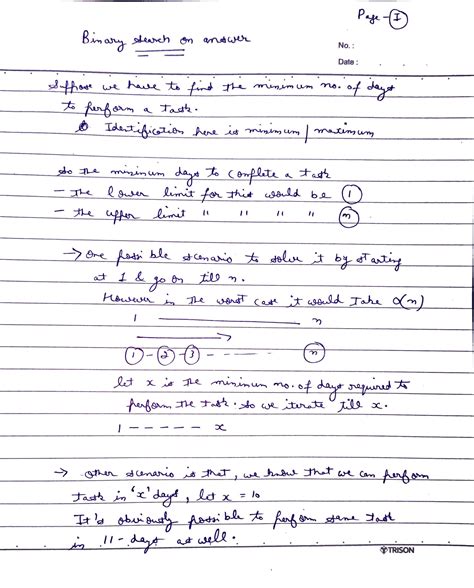 Page - I
Binary search on answer
No. :
Date :
Suppose we have to find the minimum no. of days
to perform a task.
Identification here is minimum / maximum
So the minimum days to complete a task
- The lower limit for this would be 1
- the upper limit " " " " n
→ One possible scenario to solve it by starting
at 1 & go on till n.
However in the worst case it would take O(n)
1 ——— n
1 - 2 - 3 - - - - - - n
let x is the minimum no. of days required to
perform the task. So we iterate till x.
1 - - - - - x
→ Other scenario is that, we know that we can perform
task in 'x' days, let x = 10
It's obviously possible to perform same task
in 11 - days as well.
TRISON